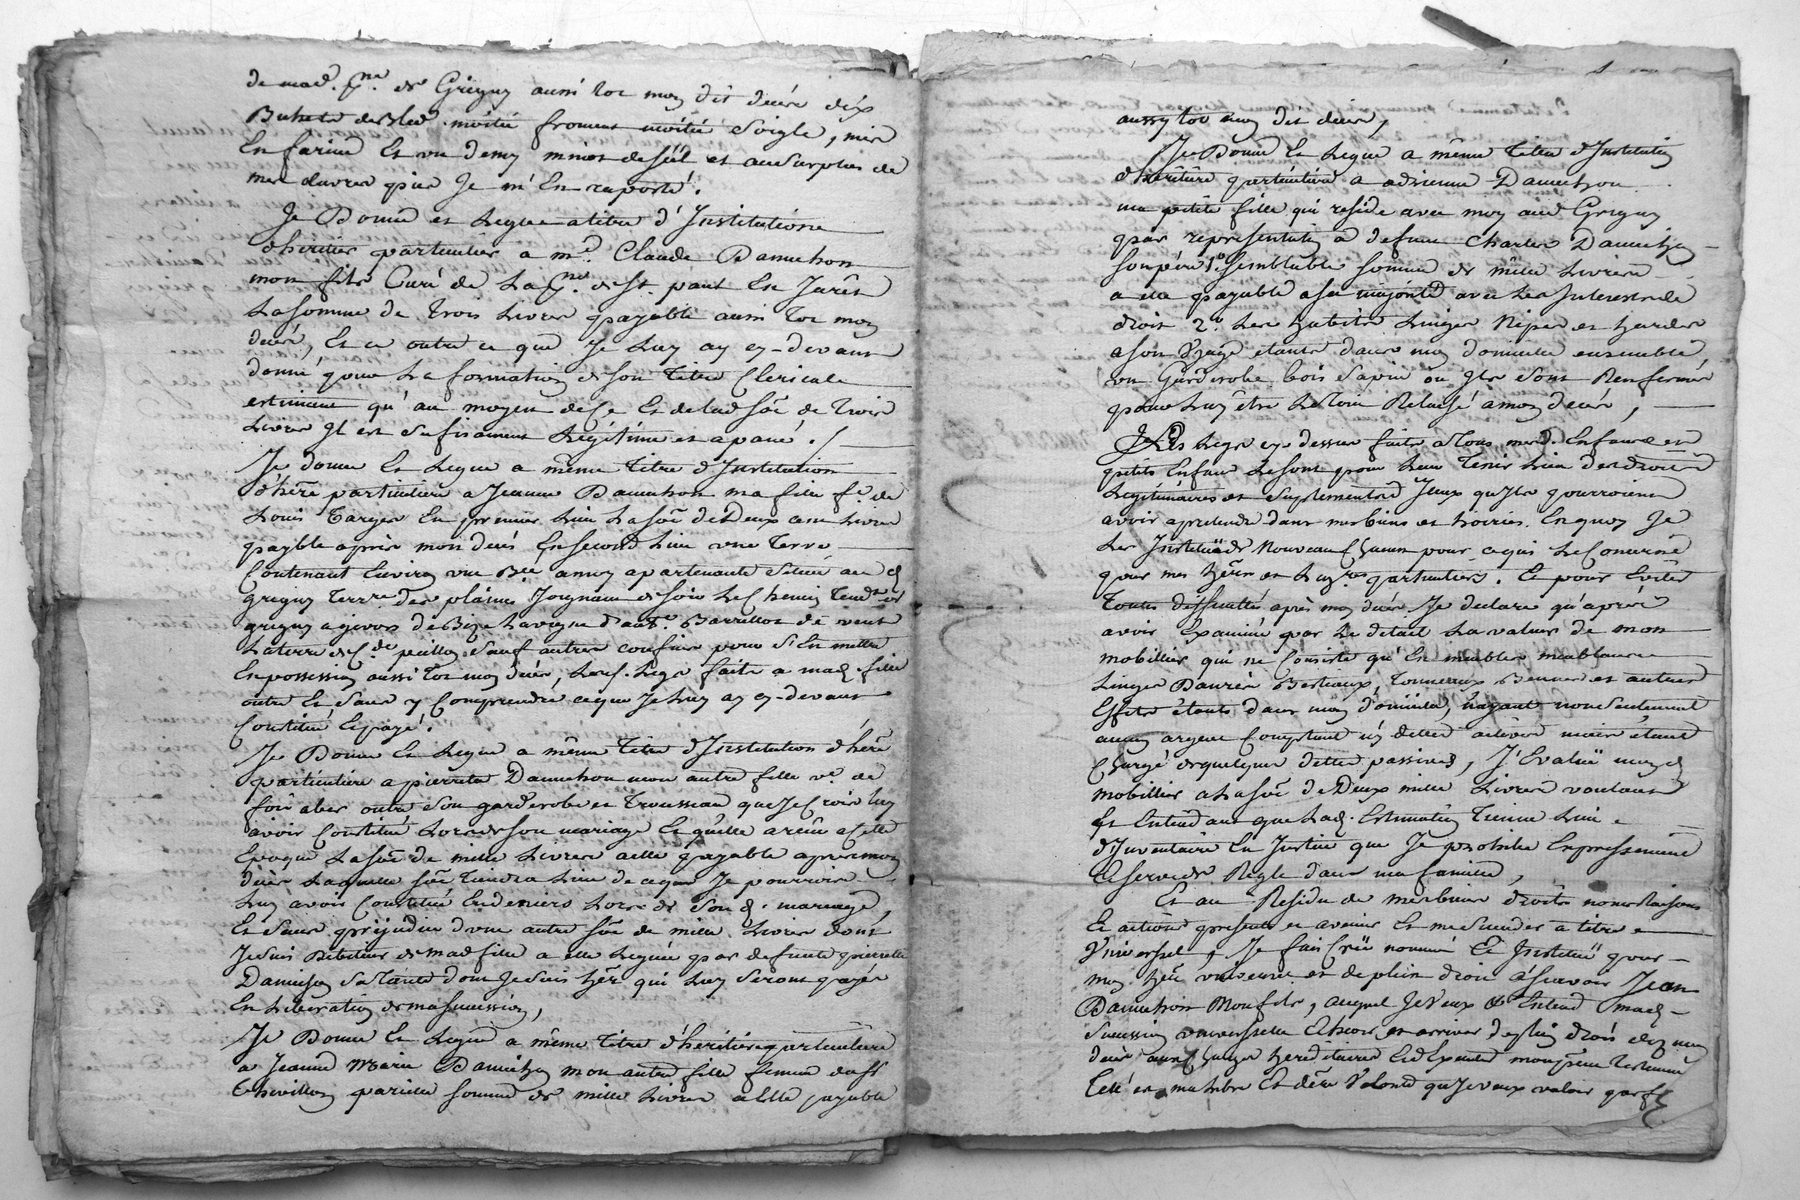 de mad. p.ne de Grigny aussi tot mon dit décès dix
Bichets de Bled moitié froment moitié Soigle, mis
En farine Et un demy minot de sel et au Surplus de
mes œuvres pies Je m'En raporte.
Je Donne et Legue a titre d'Institution
d'héritier particulier a m.re Claude Damichon
mon fils Curé de La p.sse de St. paul En Jarêts
La somme de trois Livres payable aussi tot mon
décès, Et ce outre ce que Je Luy ay cy-devant
donné pour La formation de son Titre Clericale
estimant qu'au moyen de Ce Et de lad. sôe de trois
Livres Il est sufisament Légitime et apané ./
Je donne Et Legue a même Titre d'Institution
d'hére particuliere a Jeanne Damichon ma fille fe. de
Louis Targes En premier Lieu La sôe de Deux cent Livres
payble après mon decés En second Lieu une Terre
Contenant Environ une Bée a moy apartenante Située aud.
grigny Terre. des plaines Joignant de soir Le Chemin Tendt de
grigny a givors de Bize La vigne d'ant. Barrillot de vent
La terre de Cde. peillon Sauf autres confins pour S'En mettre
En possession aussi tot mon décès, Led. Legs faits a mad. fille
outre Et Sans y Comprendre ce que Je Luy ay cy-devant
Constitué Et payé.
Je Donne Et Legue a même Titre d'Institution d'hére
particuliere a pierrette Damichon mon autre fille ve. de
outre Son garderobe et Troussau que Je Crois luy
avoir Constitué Lors de son mariage Et qu'elle a reçu a Cette
Epoque La sôe de mille Livres a elle payable apres mon
décès Laquelle sôe Tiendra Lieu de ce que Je pourrois
Luy avoir Constitué En deniers Lors de Son d. mariage,
Et Sans prejudice d'une autre sôe de mille Livres dont
Je suis Debiteur de mad. fille a elle Leguée par defunte pierrette
Damichon Sa Tante dont Je suis hér. qui Luy Seront payés
En Liberation de ma succession,
Je Donne Et Legue a même Titre d'héritiere particuliere
a Jeanne Marie Damichon mon autre fille femme de
Thevillon pareille somme de mille Livres a Elle payable
aussy tot mon dit décès,
Je Donne Et Legue a même Titre d'Institution
d'héritiere particuliere a adrienne Damichon
ma petite fille qui reside avec moy aud. Grigny
par representation a defunt Charles Damichon
son père 1.o Semblable somme de mille Livres
a elle payable a sa majorité avec Les Interests de
droit 2.o Les habits Linges Nipes et hardes
a son Usage étants dans mon domicile ensemble
un Garderobe bois Sapin où Ils Sont Renfermés
pour Luy être Le Tout Relaché a mon décès,
Les Legs cy dessus faits a Tous mesd. Enfants et
petits Enfant Le sont pour Leur Tenir Lieu des droits
Legitimaires et Suplements d'Iceux qu'Ils pourroient
avoir a pretendre dans mes biens et hoiries. En quoy Je
Les Institue de Nouveau Chacun pour ce qui Le Concerne
pour mes hérs. et Luy.res particuliers. Et pour Eviter
Toutes difficultés après mon décès Je declare qu'après
avoir Examiné par Le detail La valeur de mon
mobillier qui ne Consiste qu'En meubles meublants
Linges Danrées Bestiaux, Tonneaux Bennes et autres
Effets étants dans mon domicile, n'ayant non Seulement
aucun argent Comptant ny dettes actives mais étant
Chargé de quelques dettes passives, J'Evalue mond.
mobillier a La sôe de Deux mille Livres voulant
Et Entendant que Lad. Estimation Tienne Lieu
d'Inventaire En Justice que Je prohibe Expressement
Et serve de Regle dans ma famille,
Et au Residu de mes biens droits noms Raisons
Et actions presents et avenir Et me Succeder a titre
Universel, Je fais Crée nommé Et Institué pour
mon hér. universel et de plein droit a sçavoir Jean
Damichon Mon fils, auquel Je Veux & Entend mad.
Succession universelle Echeoir et arriver de plein droit dez mon
décès aux Charges hereditaires Et d'Executer mon présent Testament
Telle est ma Libre Et dere. Volonté que Je veux valoir par